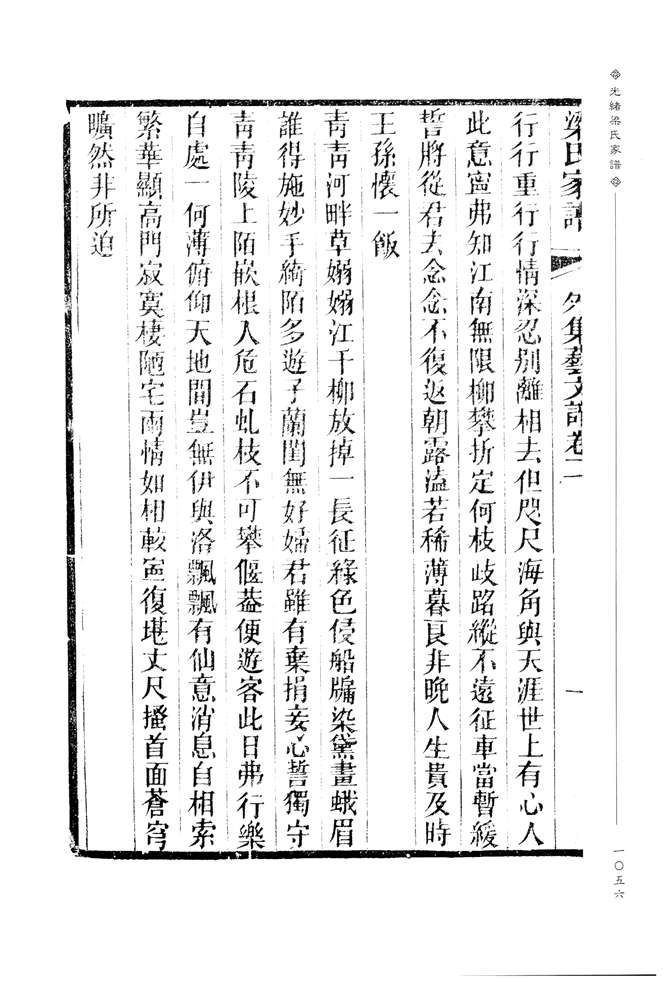 光緒梁氏家譜
一〇五六
梁氏家譜 外集藝文譜卷二 一
行行重行行情深忍別離相去但咫尺海角與天涯世上有心人
此意寍弗知江南無限柳攀折定何枝歧路縱不遠征車當暫緩
誓將從君去念念不復返朝露溘若稀薄暮良非晚人生貴及時
王孫懷一飯
青青河畔草嫋嫋江干柳放掉一長征綠色侵船牖染黛畫蛾眉
誰得施妙手綺陌多遊子蘭閨無好嬬君雖有棄捐妾心誓獨守
青青陵上陌嵌根人危石虬枝不可攀偃葢便遊客此日弗行樂
自處一何薄俯仰天地間豈無伊與洛飄飄有仙意消息自相索
繁華顯高門寂寞棲陋宅兩情如相較寍復堪丈尺搔首面蒼穹
曠然非所迫